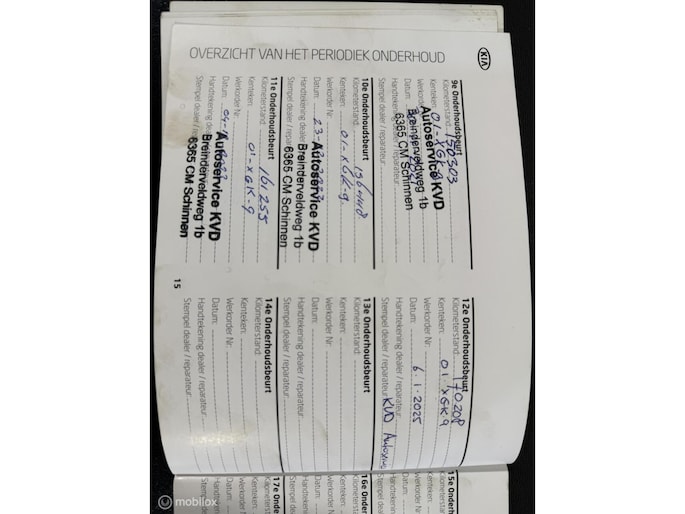 KIA
OVERZICHT VAN HET PERIODIEK ONDERHOUD
9e Onderhoudsbeurt
Kilometerstand: 150303
Kenteken: 01-XGK-9
Werkorder Nr:
Datum:
Handtekening dealer
Stempel dealer / reparateur
Autoservice KVD
Breinderveldweg 1b
6365 CM Schinnen
10e Onderhoudsbeurt
Kilometerstand:
Kenteken: 01-XGK-9.
Werkorder Nr:
Datum: 23-
Handtekening dealer
Stempel dealer / reparateur
Autoservice KVD
Breinderveldweg 1b
6365 CM Schinnen
11e Onderhoudsbeurt
Kilometerstand: 161255
Kenteken: 01-XGK-9
Werkorder Nr:
Datum:
Handtekening dealer
Stempel dealer / reparateur
Autoservice KVD
Breinderveldweg 1b
6365 CM Schinnen
12e Onderhoudsbeurt
Kilometerstand: 170208
Kenteken: 01 XGK-9
Werkorder Nr:
Datum: 6.1.2025
Handtekening dealer / reparateur
Stempel dealer / reparateur KVD
13e Onderhoudsbeurt
Kilometerstand:
Kenteken:
Werkorder Nr:
Datum:
Handtekening dealer / reparateur
Stempel dealer / reparateur
14e Onderhoudsbeurt
Kilometerstand:
Kenteken:
Werkorder Nr:
Datum:
Handtekening dealer / reparateur
Stempel dealer / reparateur
15
15e Onderhoudsbeurt
Kilometerstand
Kenteken:
Werkorder Nr:
Datum:
Handtekening
Stempel dealer
16e
Kilometerstand
Kenteken:
Werkorder Nr:
Datum:
Handtekening
Stempel dealer
17e Onderhoudsbeurt
Kenteken:
Werkorder Nr:
Datum:
Handtekening
Stempel dealer
mobilox